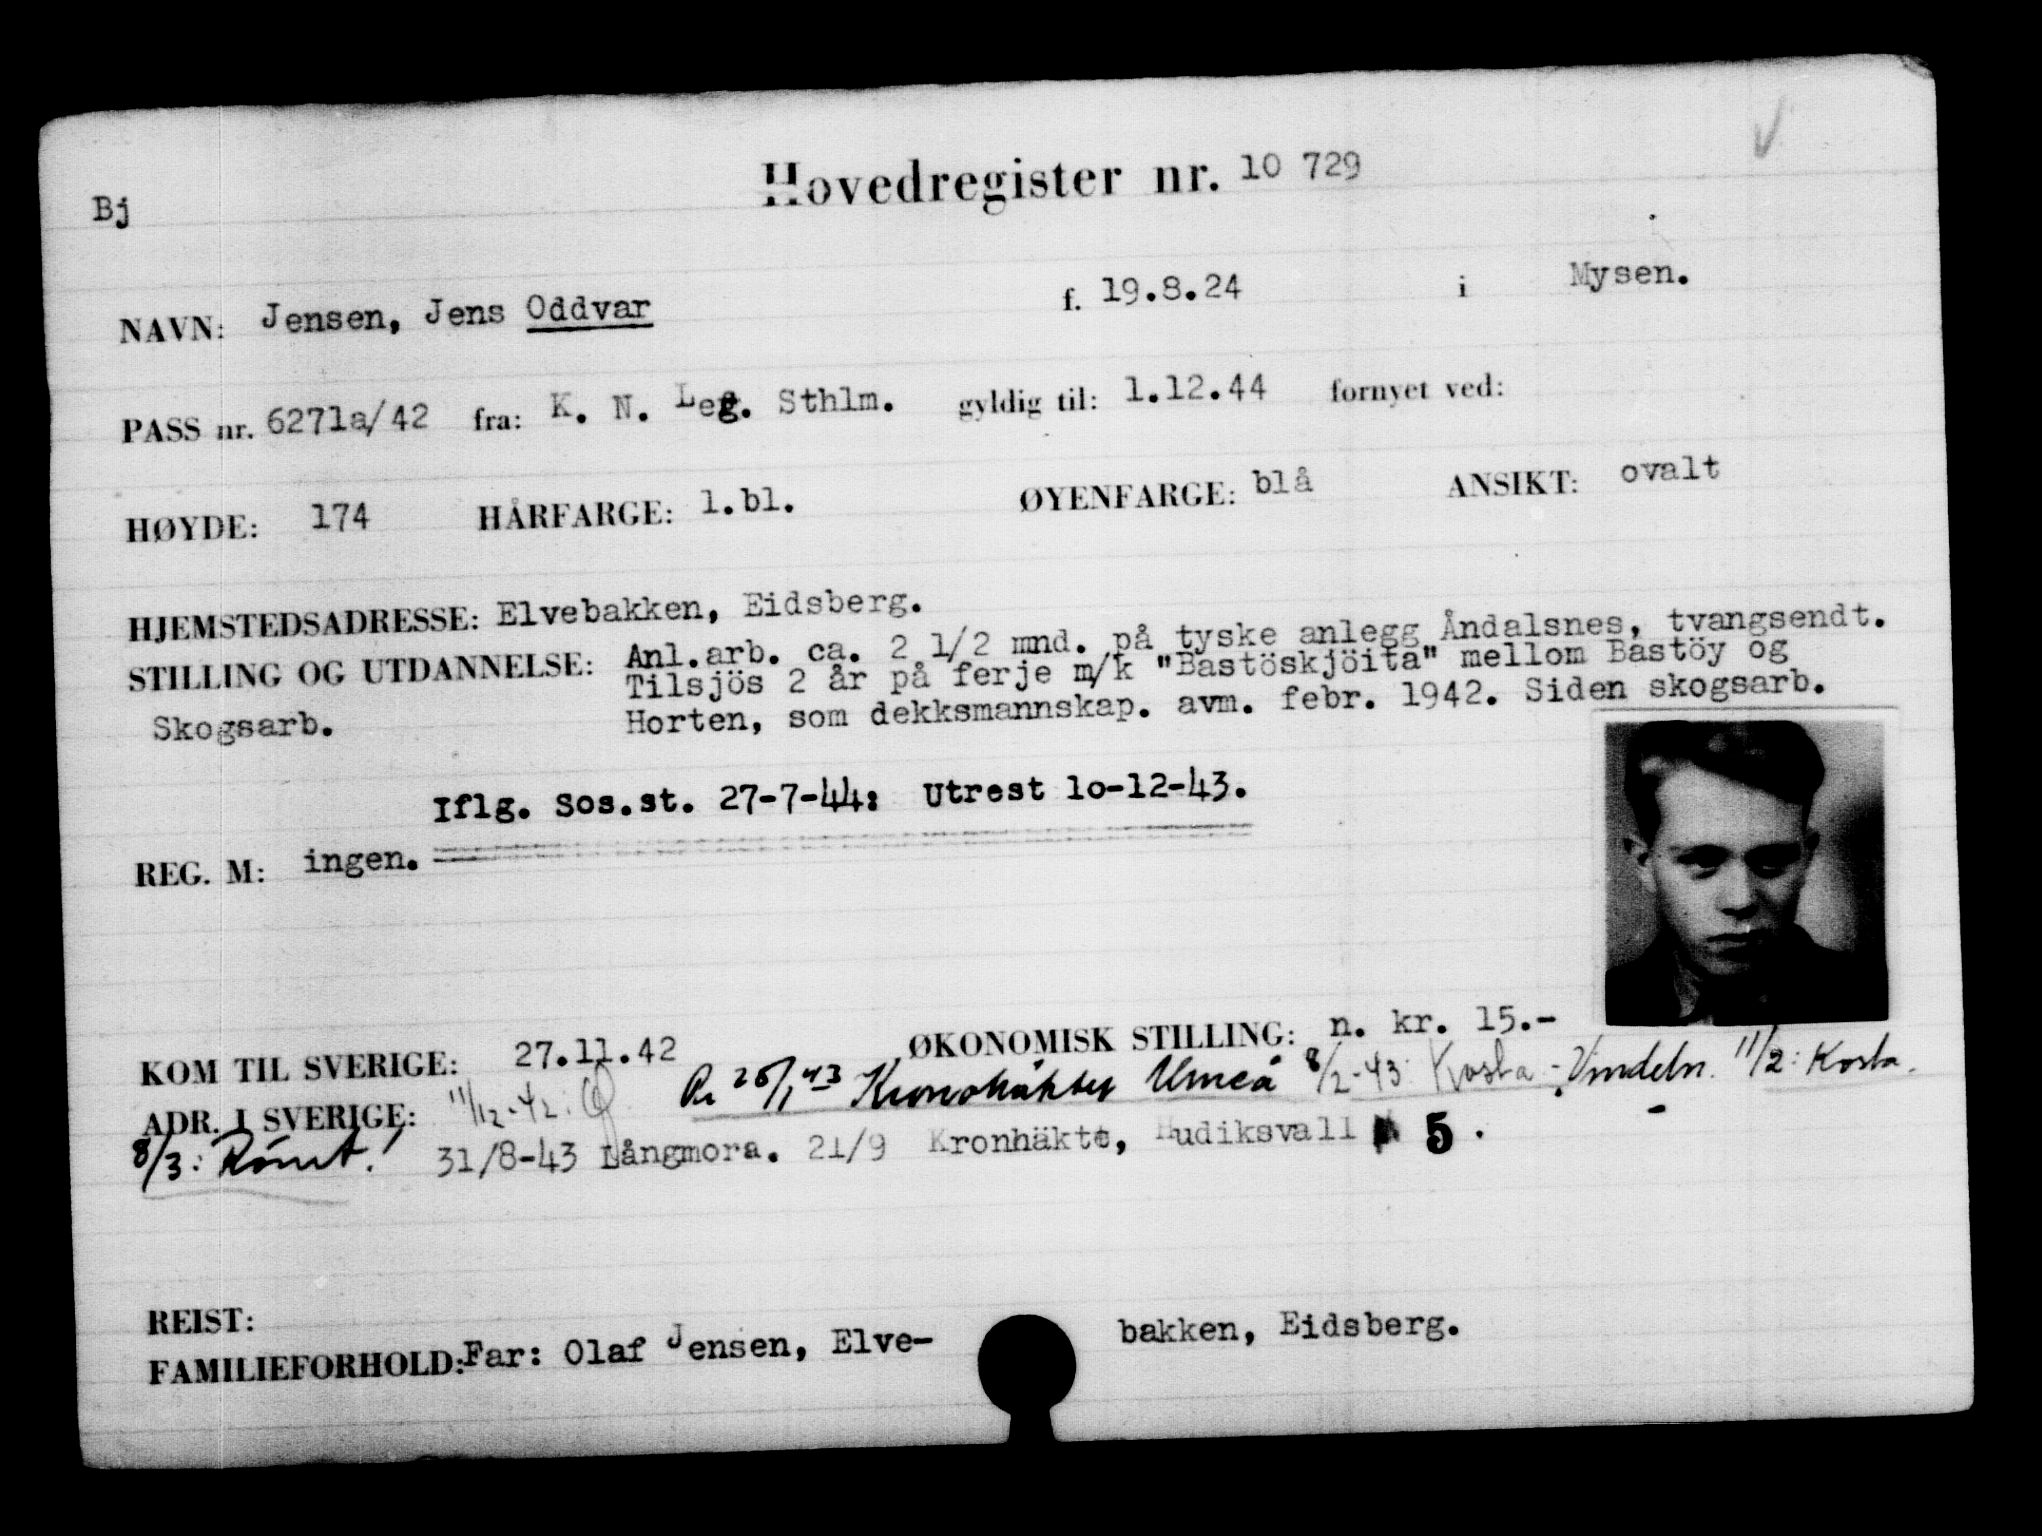 Bj
Hovedregister nr. 10 729
NAVN: Jensen, Jens Oddvar f. 19.8.24 i Mysen.
PASS nr. 6271a/42 fra: K. N. Leg. Sthlm. gyldig til: 1.12.44 fornyet ved:
HØYDE: 174 HÅRFARGE: l.bl. ØYENFARGE: blå ANSIKT: ovalt
HJEMSTEDSADRESSE: Elvebakken, Eidsberg.
STILLING OG UTDANNELSE: Anl.arb. ca. 2 1/2 mnd. på tyske anlegg Åndalsnes, tvangsendt.
Tilsjös 2 år på ferje m/k "Bastöskjöita" mellom Bastöy og
Skogsarb. Horten, som dekksmannskap. avm. febr. 1942. Siden skogsarb.
Iflg. Sos.st. 27-7-44: Utrest lo-12-43.
REG. M: ingen.
KOM TIL SVERIGE: 27.11.42 ØKONOMISK STILLING: n. kr. 15.-
ADR. I SVERIGE: 11/12-42: Kronohäktet Umeå 8/2-43: Kosta - Vindeln. 11/2: Kosta.
8/3: Rømt! 31/8-43 Långmora. 21/9 Kronhäkte, Hudiksvall 5.
REIST:
FAMILIEFORHOLD: Far: Olaf Jensen, Elve- bakken, Eidsberg.